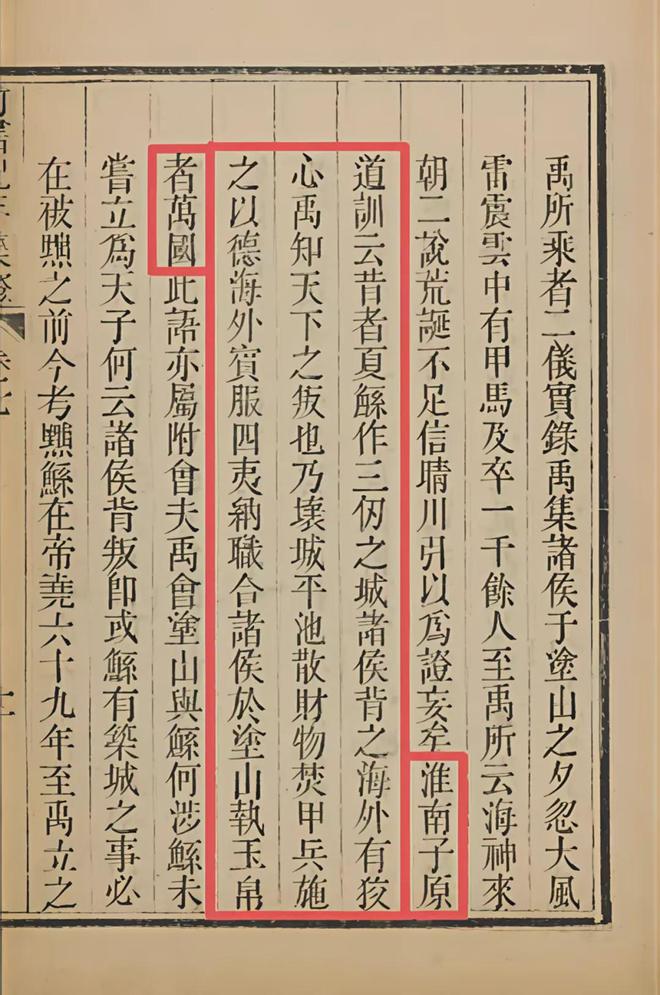 禹所乘者二儀實錄禹集諸侯于塗山之夕忽大風
雷震雲中有甲馬及卒一千餘人至禹所云海神來
朝二說荒誕不足信晴川引以爲證妄淮南子原
道訓云昔者夏鯀作三仞之城諸侯背之海外有狡
心禹知天下之叛也乃壞城平池散財物焚甲兵施
之以德海外賓服四夷納職合諸侯於塗山執玉帛
者萬國此語亦屬附會夫禹會塗山與鯀何涉鯀未
嘗立爲天子何云諸侯背叛卽或鯀有築城之事必
在被黜之前今考黜鯀在帝堯六十九年至禹立之